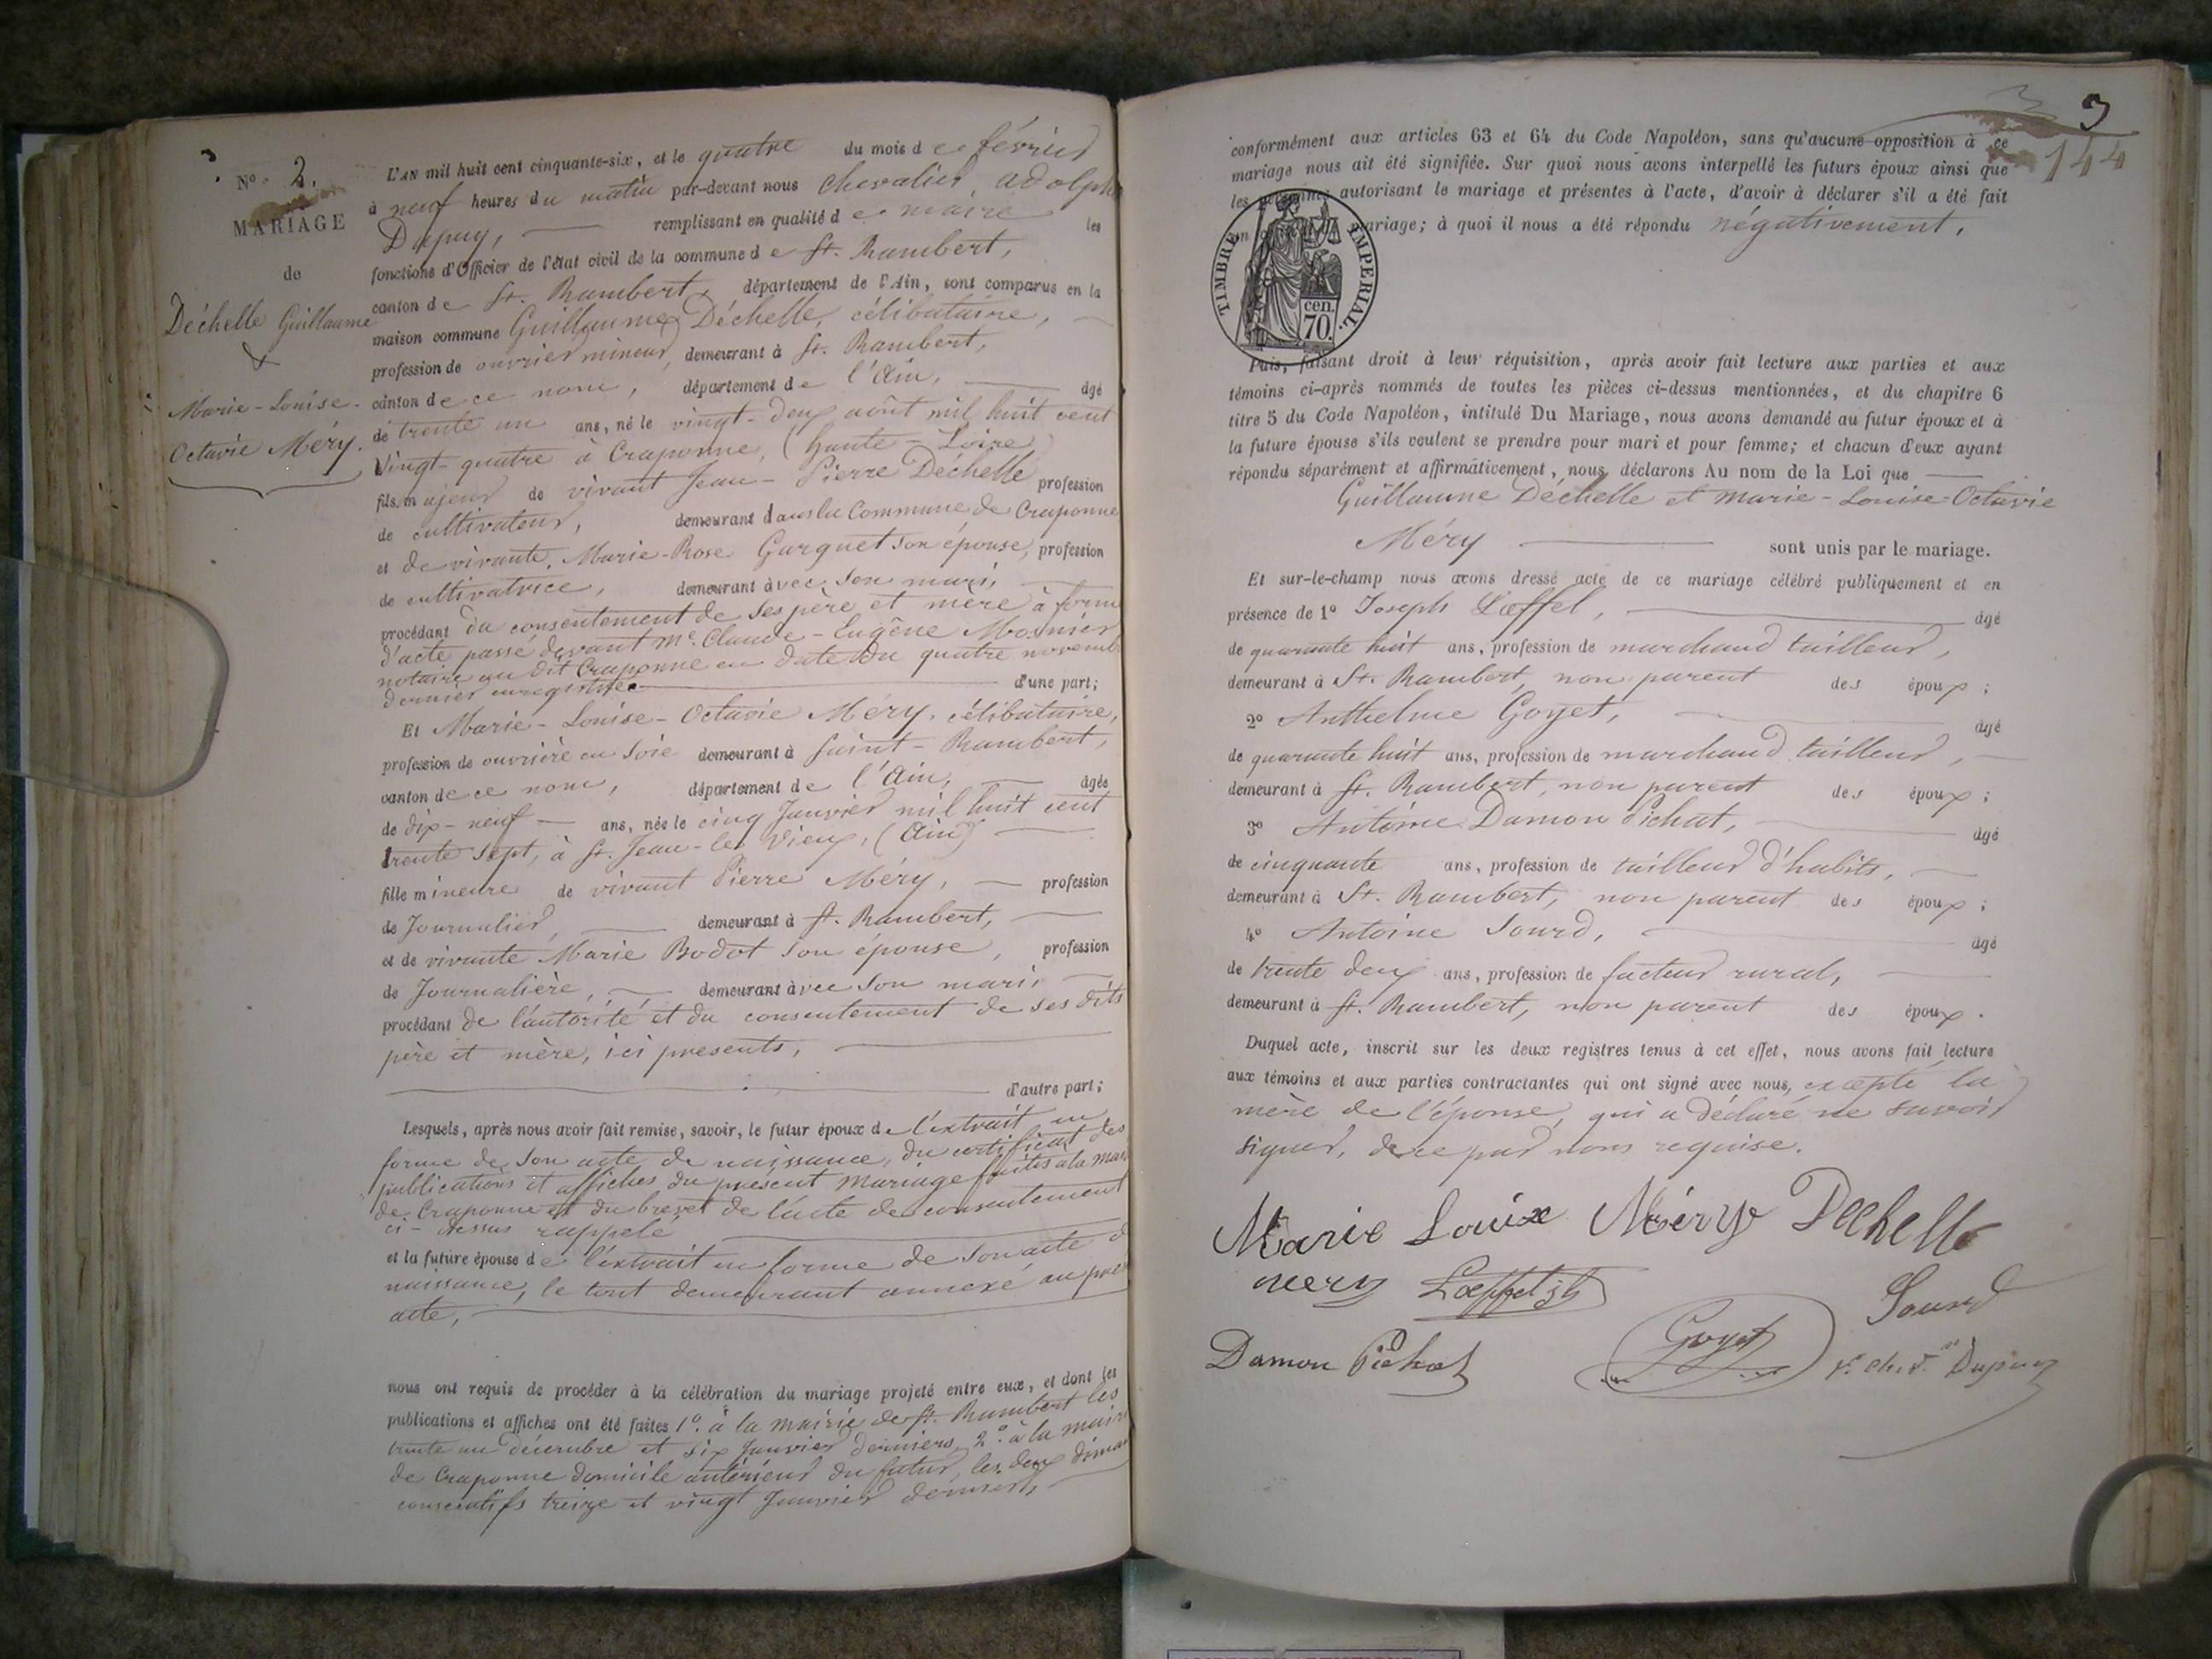 3
N° 2.
MARIAGE
de
Déchelle Guillaume
&
Marie-Louise-
Octavie Méry.
L'AN mil huit cent cinquante-six, et le quatre du mois de février
à neuf heures du matin par-devant nous Chevalier, adolphe
Dupuy, remplissant en qualité de maire les
fonctions d'Officier de l'état civil de la commune de St. Rambert,
canton de St. Rambert, département de l'Ain, sont comparus en la
maison commune Guillaume Déchelle, célibataire,
profession de ouvrier mineur, demeurant à St. Rambert,
canton de ce nom, département de l'Ain, âgé
de trente un ans, né le vingt-deux août mil huit cent
Vingt-quatre à Craponne, (haute-Loire)
fils majeur de vivant Jean-Pierre Déchelle profession
de cultivateur, demeurant dans la Commune de Craponne
et de vivante Marie-Rose Garguet son épouse, profession
de cultivatrice, demeurant avec son mari,
procédant du consentement de ses père et mère à forme
d'acte passé devant Me. Claude-Eugène Mosnier
notaire au dit Craponne en date du quatre novemb
dernier enregistrée d'une part;
Et Marie-Louise-Octavie Méry, célibataire,
profession de ouvrière en soie demeurant à Saint-Rambert,
canton de ce nom, département de l'Ain, âgée
de dix-neuf ans, née le cinq Janvier mil huit cent
trente sept, à St. Jean-le-Vieux, (Ain)
fille mineure de vivant Pierre Méry, profession
de Journalier, demeurant à St. Rambert,
et de vivante Marie Bodot son épouse, profession
de Journalière, demeurant avec son mari,
procédant de l'autorité et du consentement de ses dits
père et mère, ici presents,
d'autre part;
Lesquels, après nous avoir fait remise, savoir, le futur époux de l'extrait en
forme de son acte de naissance, du certificat des
publications et affiches du présent mariage faites à la mai
de Craponne et du brevet de l'acte de consentement
ci-dessus rappelé
et la future épouse de l'extrait en forme de son acte d
naissance, le tout demeurant annexé au pré
acte,
nous ont requis de procéder à la célébration du mariage projeté entre eux, et dont les
publications et affiches ont été faites 1°. à la mairie de St. Rambert les
trente un décembre et six Janvier derniers, 2°. à la mairi
de Craponne domicile antérieur du futur, les deux diman
consécutifs treize et vingt Janvier derniers,
3
144
conformément aux articles 63 et 64 du Code Napoléon, sans qu'aucune opposition à ce
mariage nous ait été signifiée. Sur quoi nous avons interpellé les futurs époux ainsi que
les autorisant le mariage et présentes à l'acte, d'avoir à déclarer s'il a été fait
mariage; à quoi il nous a été répondu négativement.
TIMBRE IMPERIAL.
cen.
70.
Puis, faisant droit à leur réquisition, après avoir fait lecture aux parties et aux
témoins ci-après nommés de toutes les pièces ci-dessus mentionnées, et du chapitre 6
titre 5 du Code Napoléon, intitulé Du Mariage, nous avons demandé au futur époux et à
la future épouse s'ils veulent se prendre pour mari et pour femme; et chacun d'eux ayant
répondu séparément et affirmativement, nous déclarons Au nom de la Loi que
Guillaume Déchelle et Marie-Louise-Octavie
Méry sont unis par le mariage.
Et sur-le-champ nous avons dressé acte de ce mariage célébré publiquement et en
présence de 1° Joseph Lœffel, âgé
de quarante huit ans, profession de marchand tailleur,
demeurant à St. Rambert, non parent des époux;
2° Anthelme Goyet, âgé
de quarante huit ans, profession de marchand tailleur,
demeurant à St. Rambert, non parent des époux;
3° Antoine Damon Pichat, âgé
de cinquante ans, profession de tailleur d'habits,
demeurant à St. Rambert, non parent des époux;
4° Antoine Sourd, âgé
de trente deux ans, profession de facteur rural,
demeurant à St. Rambert, non parent des époux.
Duquel acte, inscrit sur les deux registres tenus à cet effet, nous avons fait lecture
aux témoins et aux parties contractantes qui ont signé avec nous, excepté la
mère de l'épouse, qui a déclaré ne savoir
signer, de ce par nous requise.
Marie Louise Méry Dechelle
mery Lœffel
Sourd
Damon Pichat Goyet Dupuy